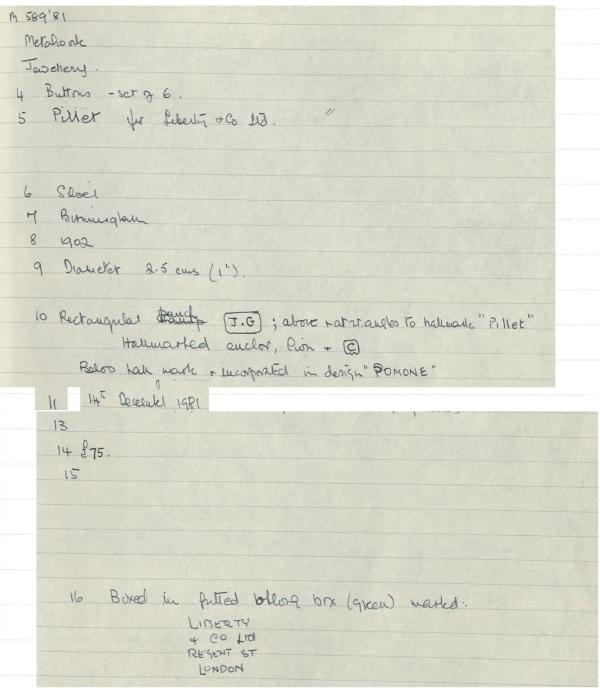 M 589'81
Metalwork
Jewellery.
4 Buttons - set of 6.
5 Pillet for Liberty & Co Ltd. "
6 Silver
7 Birmingham
8 1902
9 Diameter 2.5 cms (1").
10 Rectangular punch J.G ; above & at rt angles to hallmark "Pillet"
Hallmarked anchor, lion + C
Below hall mark & incorporated in design "POMONE"
11 14th December 1981
13
14 £75.
15
16 Boxed in fitted oblong box (green) marked:
LIBERTY
& CO LTD
REGENT ST
LONDON